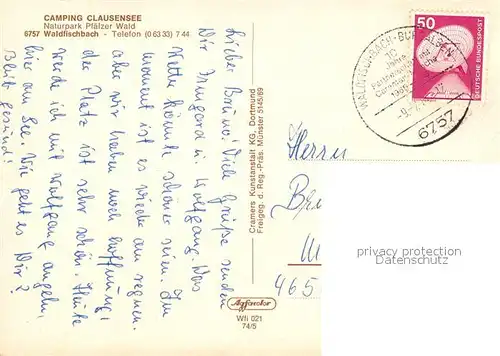 CAMPING CLAUSENSEE
Naturpark Pfälzer Wald
6757 Waldfischbach - Telefon (0 63 33) 7 44
Lieber Bruno! Viele Grüße senden
Dir Irmgard u. Wolfgang. Das
Wetter könnte schöner sein. Im
moment ist es wieder am regnen.
aber wir haben noch hoffnung!
der Platz ist sehr schön. Heute
werde ich mit Wolfgang angeln,
hier am See. Wie geht es Dir?
Bleib gesund!
Cramers Kunstanstalt KG, Dortmund
Freigeg. d. Reg.-Präs. Münster 5145/69
Agfacolor
Wfi 021
74/5
50
DEUTSCHE BUNDESPOST
WALDFISCHBACH-BURGALBEN
10
Jahre
6757
Herrn
465
privacy protection
datenschutz